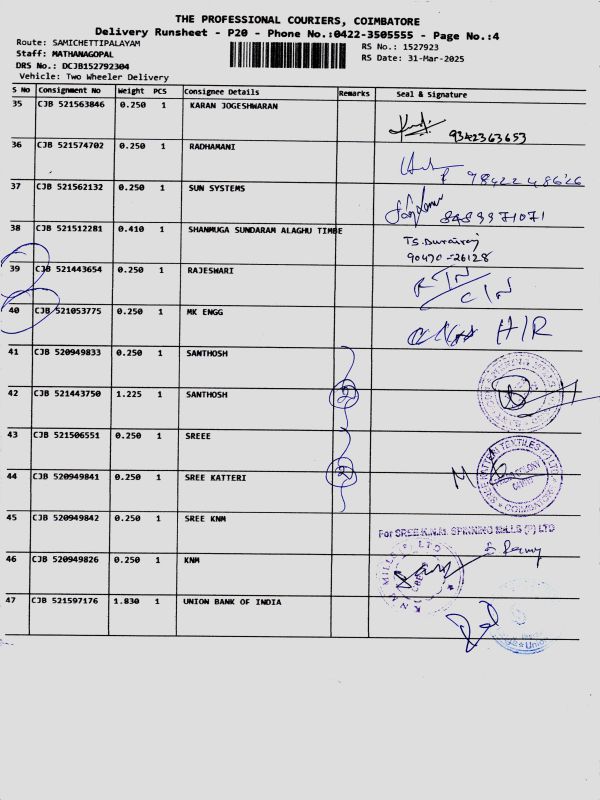 THE PROFESSIONAL COURIERS, COIMBATORE
Delivery Runsheet - P20 - Phone No.:0422-3505555 - Page No.:4
Route: SAMICHETTIPALAYAM
RS No.: 1527923
Staff: MATHANAGOPAL
RS Date: 31-Mar-2025
DRS No.: DCJB152792304
Vehicle: Two Wheeler Delivery
S No Consignment No Weight PCS Consignee Details Remarks Seal & Signature
35 CJB 521563846 0.250 1 KARAN JOGESHWARAN
9342363653
36 CJB 521574702 0.250 1 RADHAMANI
37 CJB 521562132 0.250 1 SUN SYSTEMS
8489971071
38 CJB 521512281 0.410 1 SHANMUGA SUNDARAM ALAGHU TIMBE
T.S.Durairaj
90470-26128
39 CJB 521443654 0.250 1 RAJESWARI
RTN
CIN
40 CJB 521053775 0.250 1 MK ENGG
H/R
41 CJB 520949833 0.250 1 SANTHOSH
42 CJB 521443750 1.225 1 SANTHOSH
2
43 CJB 521506551 0.250 1 SREEE
44 CJB 520949841 0.250 1 SREE KATTERI
2
SREE KATTERI TEXTILES (P) LTD
COIMBATORE
45 CJB 520949842 0.250 1 SREE KNM
For SREE K.N.M. SPINNING MILLS (P) LTD
46 CJB 520949826 0.250 1 KNM
MILLS P LTD
47 CJB 521597176 1.830 1 UNION BANK OF INDIA